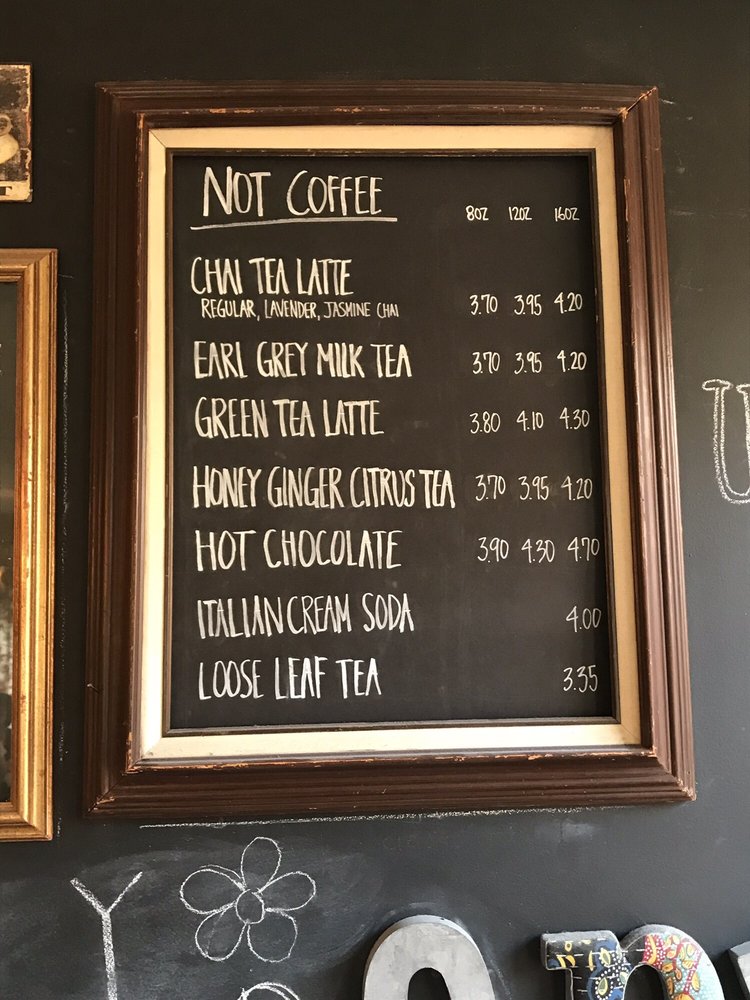 NOT COFFEE 8OZ 12OZ 16OZ
CHAI TEA LATTE
REGULAR, LAVENDER, JASMINE CHAI 3.70 3.95 4.20
EARL GREY MILK TEA 3.70 3.95 4.20
GREEN TEA LATTE 3.80 4.10 4.30
HONEY GINGER CITRUS TEA 3.70 3.95 4.20
HOT CHOCOLATE 3.90 4.30 4.70
ITALIAN CREAM SODA 4.00
LOOSE LEAF TEA 3.35